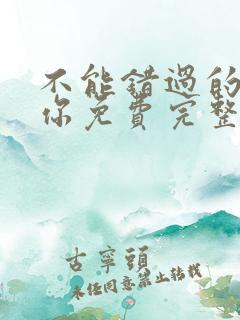 不能错過的
你免費完整
古寧頭
未经同意禁止转载